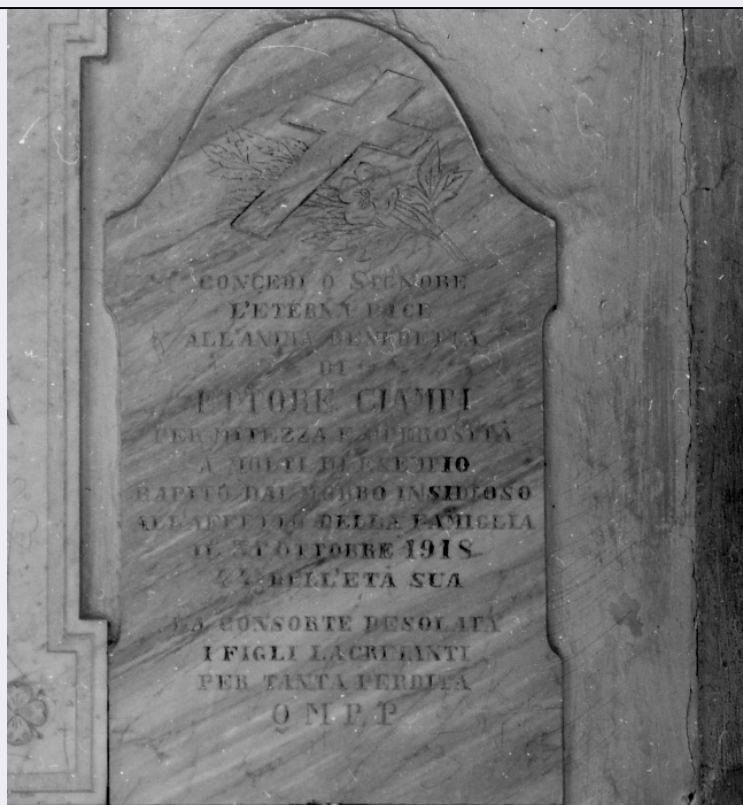 CONCEDI O SIGNORE
L'ETERNA PACE
ALL'ANIMA BENEDETTA
DI
ETTORE CIAMPI
PER MITEZZA E OPEROSITÀ
A MOLTI DI ESEMPIO
RAPITO DAL MORBO INSIDIOSO
ALL'AFFETTO DELLA FAMIGLIA
IL 31 OTTOBRE 1918
44 DELL'ETÀ SUA
LA CONSORTE DESOLATA
I FIGLI LACRIMANTI
PER TANTA PERDITA
Q M P P